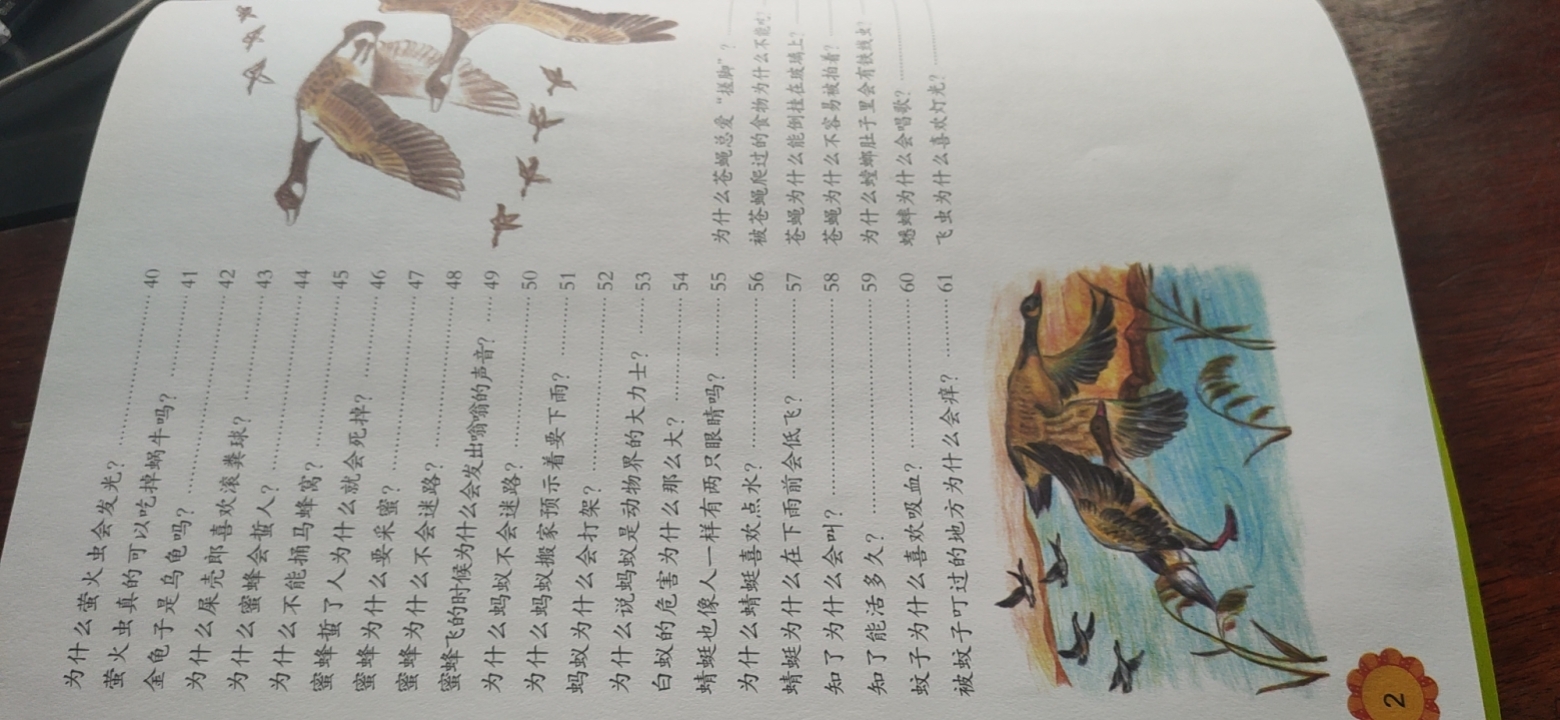 为什么萤火虫会发光？ …… 40
萤火虫真的可以吃掉蜗牛吗？ …… 41
金龟子是乌龟吗？ …… 42
为什么屎壳郎喜欢滚粪球？ …… 43
为什么蜜蜂会蜇人？ …… 44
为什么不能捅马蜂窝？ …… 45
蜜蜂蜇了人为什么就会死掉？ …… 46
蜜蜂为什么要采蜜？ …… 47
蜜蜂为什么不会迷路？ …… 48
蜜蜂飞的时候为什么会发出嗡嗡的声音？ …… 49
为什么蚂蚁不会迷路？ …… 50
为什么蚂蚁搬家预示着要下雨？ …… 51
蚂蚁为什么会打架？ …… 52
为什么说蚂蚁是动物界的大力士？ …… 53
白蚁的危害为什么那么大？ …… 54
蜻蜓也像人一样有两只眼睛吗？ …… 55
为什么蜻蜓喜欢点水？ …… 56
蜻蜓为什么在下雨前会低飞？ …… 57
知了为什么会叫？ …… 58
知了能活多久？ …… 59
蚊子为什么喜欢吸血？ …… 60
被蚊子叮过的地方为什么会痒？ …… 61
为什么苍蝇总爱“搓脚”？
被苍蝇爬过的食物为什么不能吃？
苍蝇为什么能倒挂在玻璃上？
苍蝇为什么不容易被拍着？
为什么螳螂肚子里会有铁线虫？
蟋蟀为什么会唱歌？
飞虫为什么喜欢灯光？
2